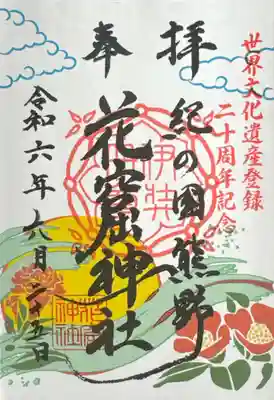 世界文化遺産登録
二十周年記念
奉拝
紀の国熊野
花窟神社
令和六年六月二十五日